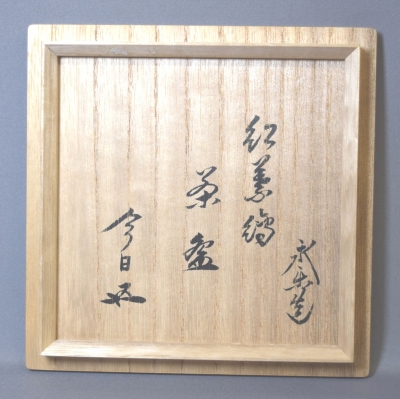 永楽造
紅葉繪
茶盌
今日庵